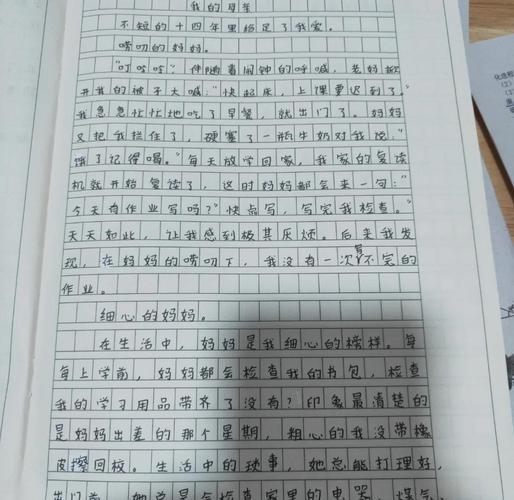 我的母亲
不短的十四年里给足了我爱。
唠叨的妈妈。
"叮咚咚"，伴随着闹钟的呼喊，老妈掀
开我的被子大喊："快起床，上课要迟到了。"
我急急忙忙地吃了早餐，就出门了。妈妈
又把我拦住了，硬塞了一瓶牛奶对我说："
饿了记得喝。"每天放学回家，我家的复读
机就开始复读了，这时妈妈都会来一句："
今天有作业写吗？"快点写，写完我检查。"
天天如此，让我感到极其厌烦。后来我发
现，在妈妈的唠叨下，我没有一次写不完的
作业。
细心的妈妈。
在生活中，妈妈是我细心的榜样。每
每上学前，妈妈都会检查我的书包，检查
我的学习用品带齐了没有？印象最清楚的
是妈妈出差的那个星期，粗心的我没带橡
皮擦回校。生活中的琐事，她总能打理好，
出门前，她总是会检查家里的电器，煤气